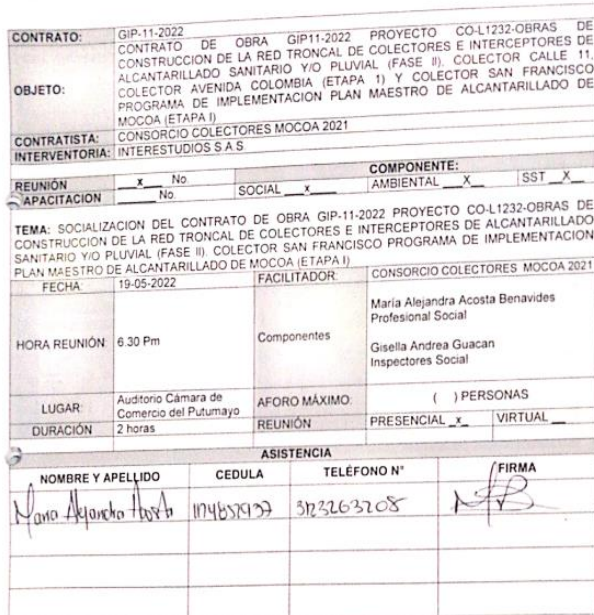 CONTRATO: GIP-11-2022
OBJETO: CONTRATO DE OBRA GIP11-2022 PROYECTO CO-L1232-OBRAS DE
CONSTRUCCION DE LA RED TRONCAL DE COLECTORES E INTERCEPTORES DE
ALCANTARILLADO SANITARIO Y/O PLUVIAL (FASE II). COLECTOR CALLE 11,
COLECTOR AVENIDA COLOMBIA (ETAPA 1) Y COLECTOR SAN FRANCISCO
PROGRAMA DE IMPLEMENTACION PLAN MAESTRO DE ALCANTARILLADO DE
MOCOA (ETAPA I)
CONTRATISTA: CONSORCIO COLECTORES MOCOA 2021
INTERVENTORIA: INTERESTUDIOS S.A.S
COMPONENTE:
REUNIÓN x No. SOCIAL x AMBIENTAL X SST X
APACITACION No.
TEMA: SOCIALIZACION DEL CONTRATO DE OBRA GIP-11-2022 PROYECTO CO-L1232-OBRAS DE
CONSTRUCCION DE LA RED TRONCAL DE COLECTORES E INTERCEPTORES DE ALCANTARILLADO
SANITARIO Y/O PLUVIAL (FASE II). COLECTOR SAN FRANCISCO PROGRAMA DE IMPLEMENTACION
PLAN MAESTRO DE ALCANTARILLADO DE MOCOA (ETAPA I)
FECHA: 19-05-2022 FACILITADOR: CONSORCIO COLECTORES MOCOA 2021
HORA REUNIÓN: 6.30 Pm Componentes
María Alejandra Acosta Benavides
Profesional Social
Gisella Andrea Guacan
Inspectores Social
LUGAR: Auditorio Cámara de
Comercio del Putumayo
AFORO MÁXIMO: ( ) PERSONAS
DURACIÓN 2 horas REUNIÓN PRESENCIAL x VIRTUAL
ASISTENCIA
NOMBRE Y APELLIDO CEDULA TELÉFONO N° FIRMA
Maria Alejandra Acosta 3123263208